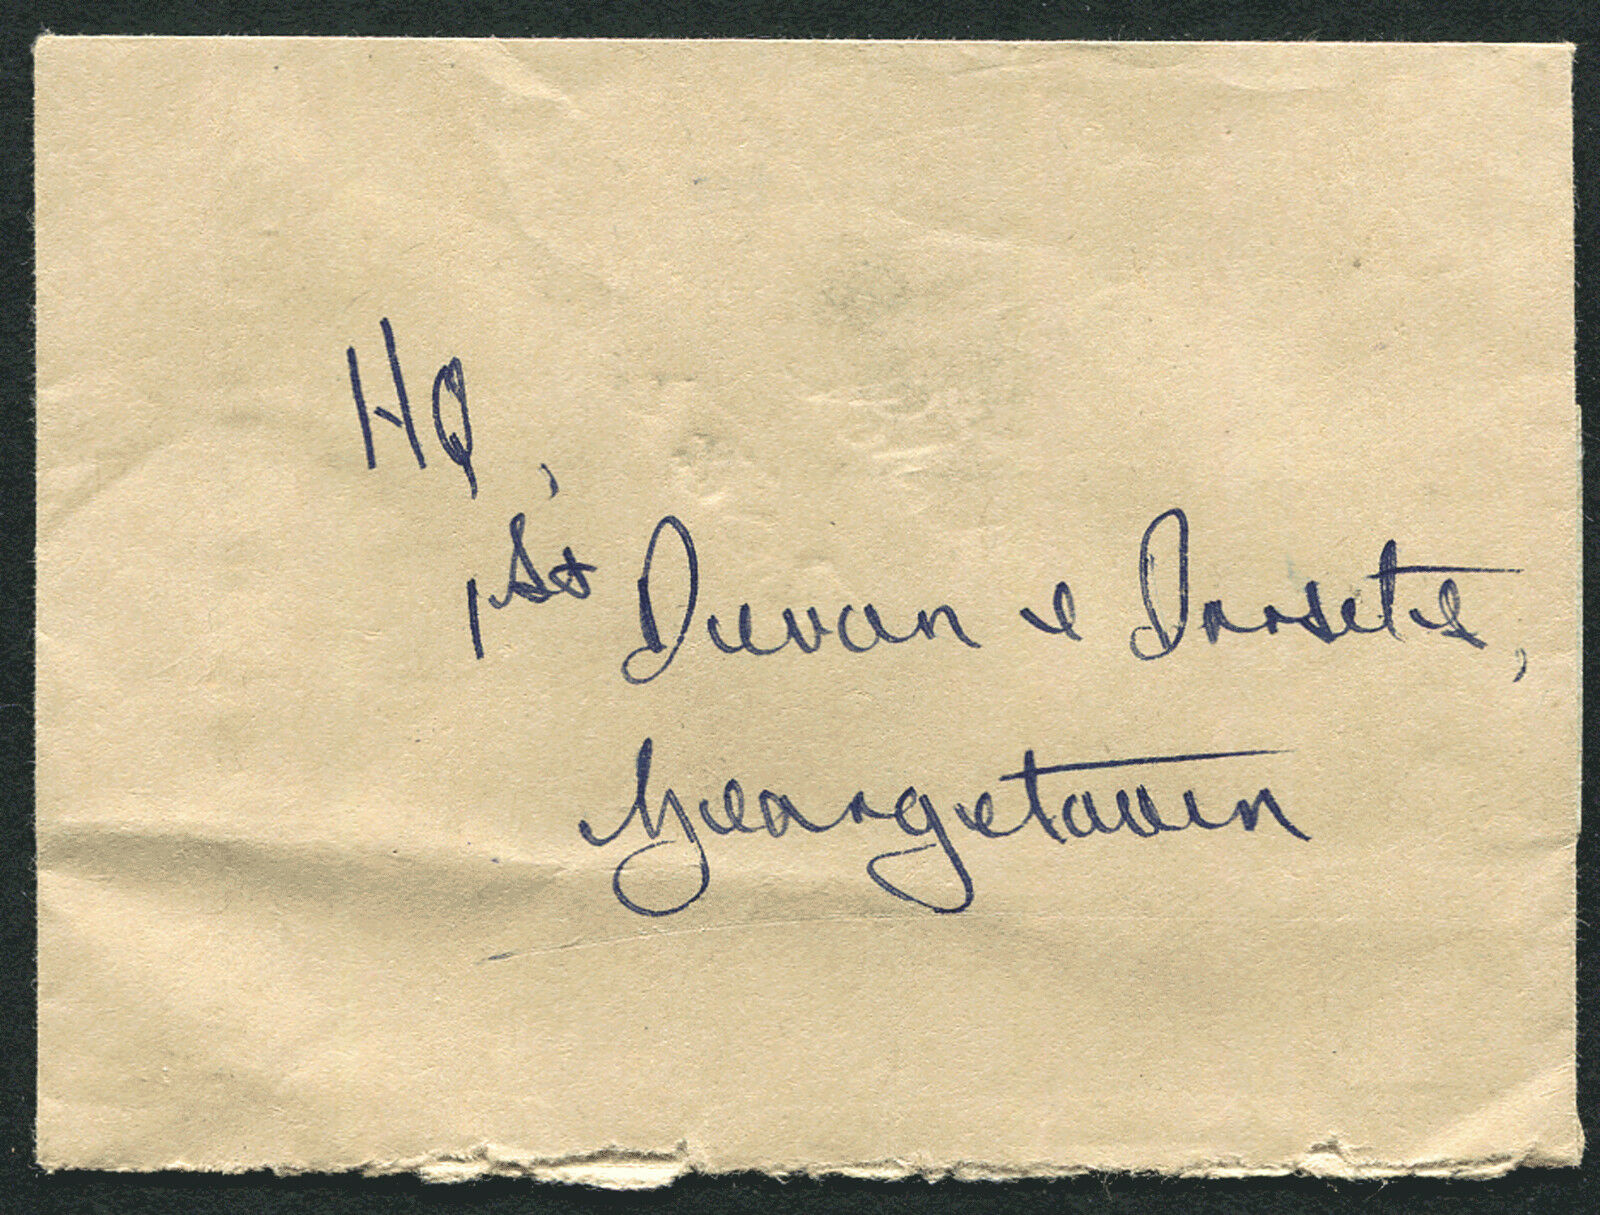 HQ,
1st Devon & Dorsets,
Georgetown